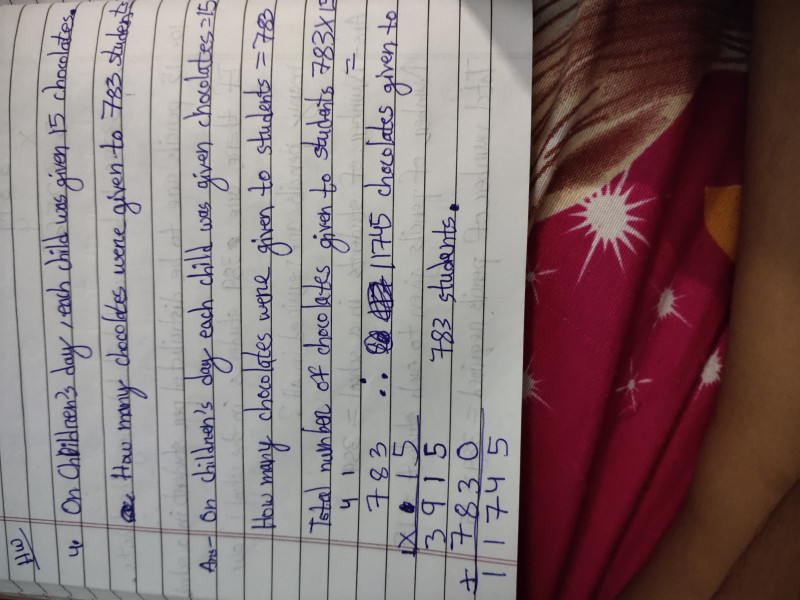 HW
4. On Children's day, each child was given 15 chocolates.
How many chocolates were given to 783 students
Ans- On children's day each child was given chocolates = 15
How many chocolates were given to students = 783
Total number of chocolates given to students 783 x 15
=
4 1
783 ∴ 11745 chocolates given to
x 15
3915 783 students.
+ 7830
11745